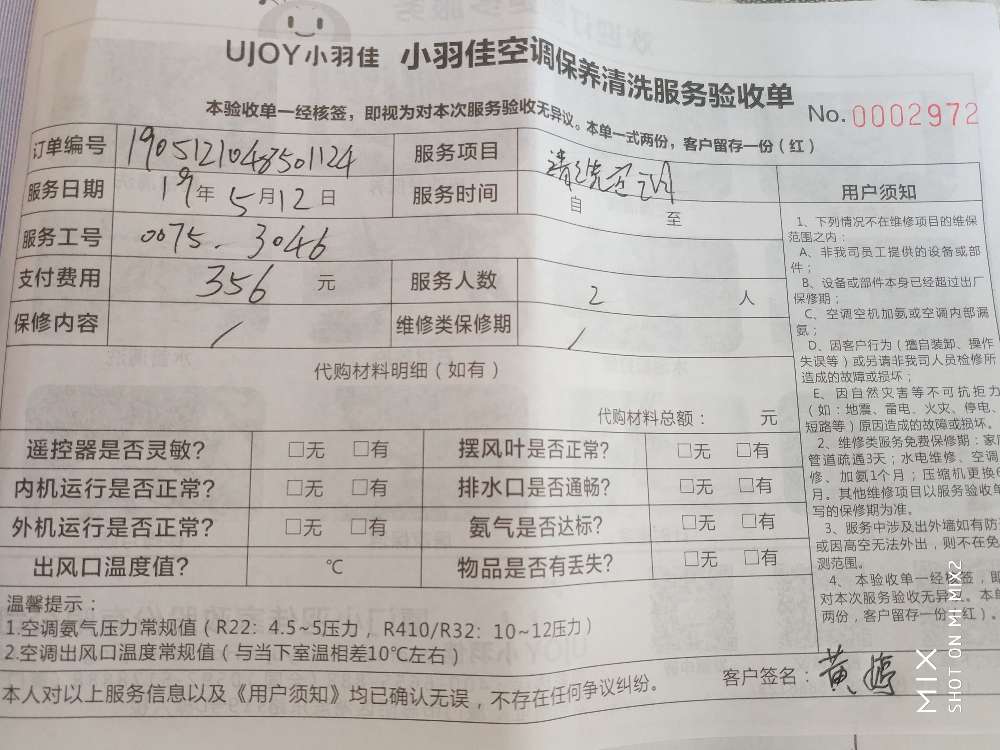 UJOY小羽佳 小羽佳空调保养清洗服务验收单
No. 0002972
本验收单一经核签，即视为对本次服务验收无异议。本单一式两份，客户留存一份（红）
订单编号 1905121048501124 服务项目 清洗空调
服务日期 19年5月12日 服务时间 自 至
服务工号 0075. 3046
支付费用 356 元 服务人数 2 人
保修内容 / 维修类保修期 /
代购材料明细（如有）
代购材料总额： 元
遥控器是否灵敏? □无 □有 摆风叶是否正常? □无 □有
内机运行是否正常? □无 □有 排水口是否通畅? □无 □有
外机运行是否正常? □无 □有 氨气是否达标? □无 □有
出风口温度值? ℃ 物品是否有丢失? □无 □有
温馨提示：
1.空调氨气压力常规值（R22：4.5~5压力，R410/R32：10~12压力）
2.空调出风口温度常规值（与当下室温相差10℃左右）
本人对以上服务信息以及《用户须知》均已确认无误，不存在任何争议纠纷。 客户签名：黄婷
用户须知
1、下列情况不在维修项目的维保
范围之内：
A、非我司员工提供的设备或部
件；
B、设备或部件本身已经超过出厂
保修期；
C、空调空机加氨或空调内部漏
氨；
D、因客户行为（擅自装卸、操作
失误等）或另请非我司人员检修所
造成的故障或损坏；
E、因自然灾害等不可抗拒力
（如：地震、雷电、火灾、停电、
短路等）原因造成的故障或损坏。
2、维修类服务免费保修期：家庭
管道疏通3天；水电维修、空调
修、加氨1个月；压缩机更换
月。其他维修项目以服务验收单
写的保修期为准。
3、服务中涉及出外墙如有防
或因高空无法外出，则不在免
测范围。
4、本验收单一经核签，即
对本次服务验收无异议。本单
两份，客户留存一份（红）。
MIX
SHOT ON MI MIX2